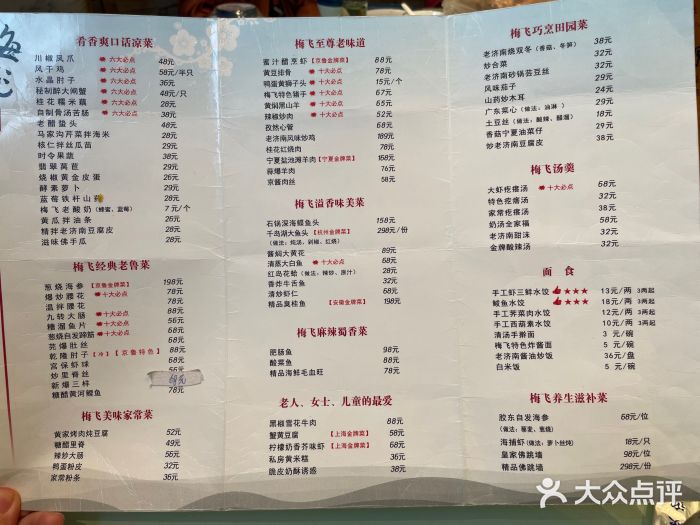 肴香爽口话凉菜
川椒凤爪 48元
风干鸡 六大必点 58元/半只
水晶肘子 六大必点 36元
秘制醉大闸蟹 六大必点 48元/只
桂花糯米藕 六大必点 28元
自制骨汤苦肠 六大必点 38元
老醋蛰头 48元
马家沟芹菜拌海米 28元
核仁拌丝瓜苗 29元
时令果蔬 38元
翡翠莴苣 29元
烧椒黄金皮蛋 26元
酵素萝卜 29元
蓝莓铁杆山药 29元
梅飞老酸奶(蜂蜜、蓝莓) 7元/个
黄瓜拌油条 26元
精拌老济南豆腐皮 28元
滋味佛手瓜 28元
梅飞经典老鲁菜
葱烧海参【京鲁金牌菜】 198元
爆炒腰花 六大必点 78元
温拌腰花 78元
九转大肠 六大必点 88元
糟溜鱼片 六大必点 56元
葱烧自发蹄筋 六大必点 88元
芫爆肚丝 88元
乾隆肘子【冷】【京鲁特色】 68元
宫保虾球 88元
炒里脊丝 56元
新爆三样 68元
糖醋黄河鲤鱼 78元
梅飞美味家常菜
黄家烤肉炖豆腐 52元
糖醋里脊 49元
辣炒大肠 56元
鸭蛋粉皮 32元
家常粉条 36元
梅飞至尊老味道
蜜汁醋烹虾【京鲁金牌菜】 88元
黄豆排骨 六大必点 78元
鸭蛋黄狮子头 六大必点 15元/个
梅飞特色猪手 六大必点 68元
黄焖黑山羊 六大必点 65元
辣椒炒肉 六大必点 52元
孜然心管 68元
老济南风味炒鸡 189元
桂花红烧肉 78元
宁夏盐池滩羊肉【宁夏金牌菜】 168元
蒜爆羊肉 76元
京酱肉丝 58元
梅飞溢香味美菜
石锅深海鳗鱼头 158元
千岛湖大鱼头【杭州金牌菜】 298元/份
(做法:炖汤、剁椒、红烧)
酱焖大黄花 78元
清蒸大白鱼 六大必点 68元
红岛花蛤(做法:辣炒、原汁) 28元
香炸牛舌鱼 32元
清炒虾仁 68元
精品臭桂鱼【安徽金牌菜】 108元
梅飞麻辣蜀香菜
肥肠鱼 98元
酸菜鱼 78元
精品海鲜毛血旺 78元
老人、女士、儿童的最爱
黑椒雪花牛肉 88元
蟹黄豆腐【上海金牌菜】 58元
柠檬奶香芥味虾【上海金牌菜】 68元
私房黄米糕 36元
脆皮奶酥诱惑 38元
梅飞巧烹田园菜
老济南烧双冬(香菇、冬笋) 38元
炒合菜 32元
老济南砂锅芸豆丝 29元
风味茄子 24元
山药炒木耳 29元
广东菜心(做法:油淋) 29元
土豆丝(做法:酸辣、醋溜) 18元
香菇宁夏油菜仔 29元
炒老济南豆腐皮 38元
梅飞汤羹
大虾疙瘩汤 六大必点 68元
特色疙瘩汤 32元
家常疙瘩汤 38元
奶汤全家福 58元
老济南甜沫 32元
金牌酸辣汤 32元
面 食
手工虾三鲜水饺 ★★★ 13元/两 3两起
鲅鱼水饺 ★★★ 18元/两 3两起
手工荠菜肉水饺 12元/两 3两起
手工西葫素水饺 10元/两 3两起
清汤手擀面 3元/碗
梅飞特色炸酱面 5元/碗
老济南酱油炒饭 36元/盘
白米饭 5元/碗
梅飞养生滋补菜
胶东自发海参 68元/位
(做法:葱麦、葱烧)
海捕虾(做法:萝卜丝炖) 18元/只
皇家佛跳墙 98元/位
精品佛跳墙 298元/份
大众点评